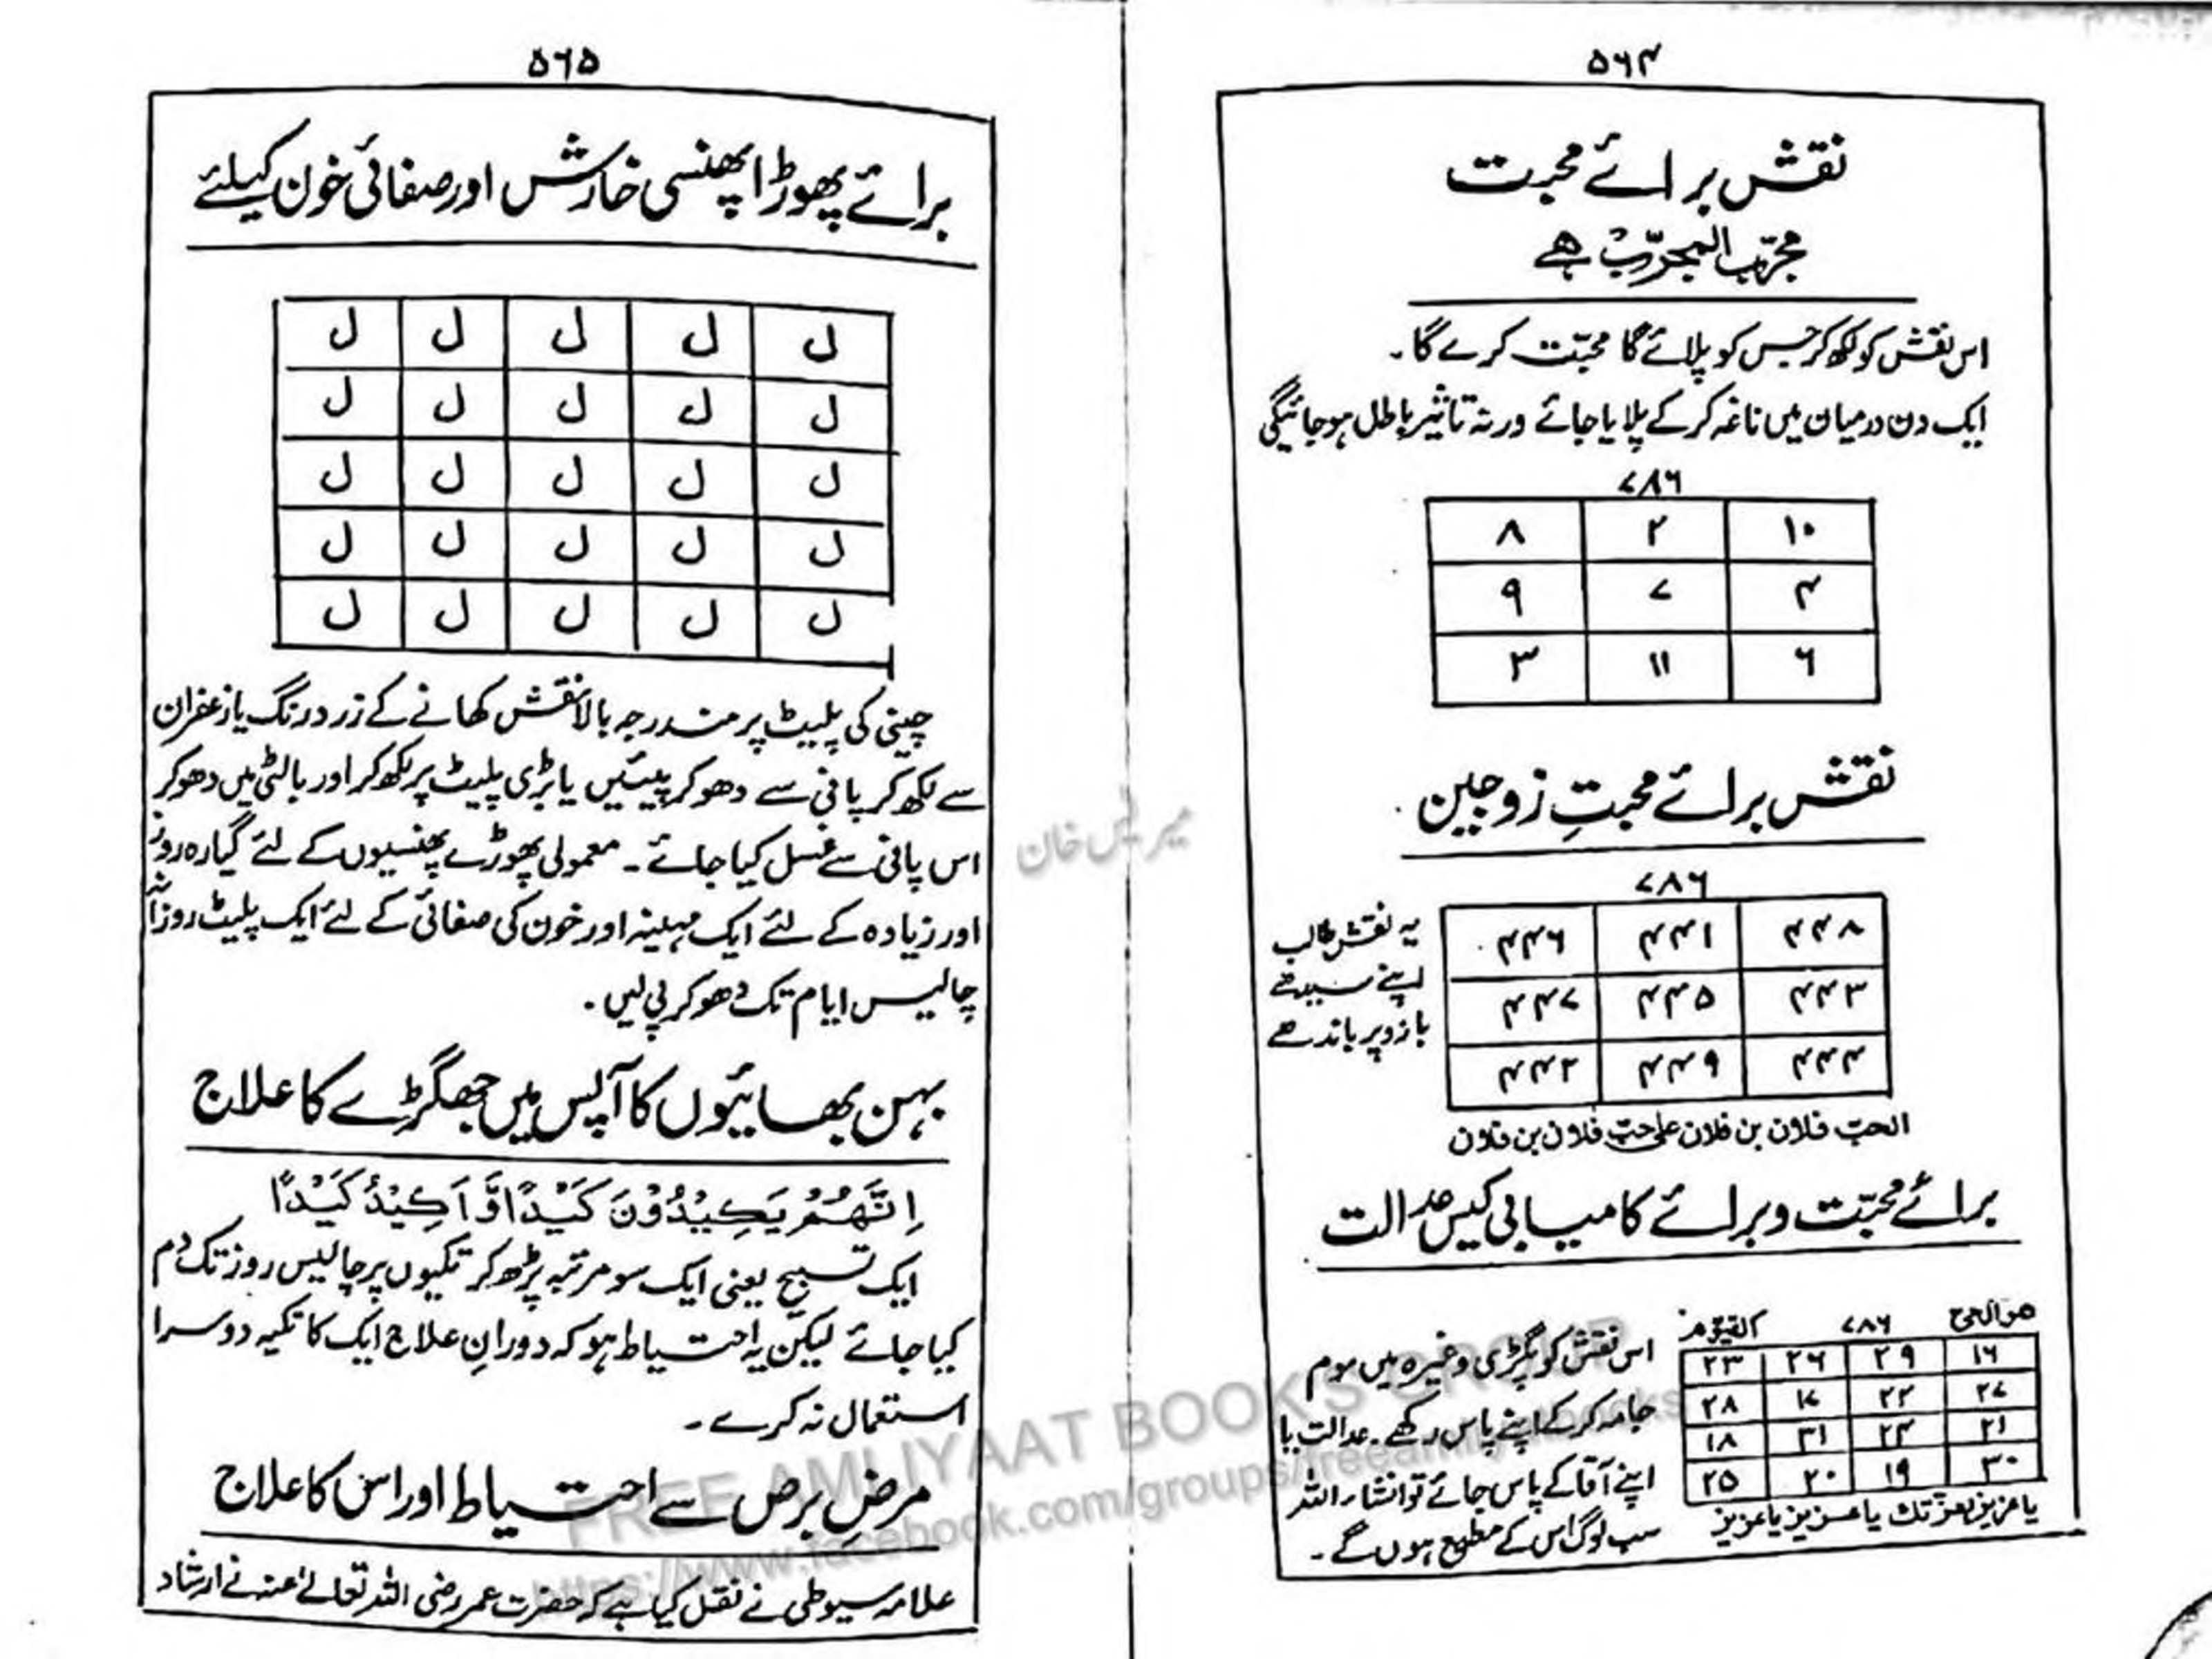 ۵۶۴
نقش برائے محبت
مجرّب المجرّب ہے
اس نقش کو لکھ کر جس کو پلائے گا محبّت کرے گا۔
ایک دن درمیان میں ناغہ کرکے پلایا جائے ورنہ تاثیر باطل ہوجائیگی
۷۸۶
۸ ۲ ۱۰
۹ ۷ ۴
۳ ۱۱ ۶
نقش برائے محبتِ زوجین
۷۸۶
۴۴۶ ۴۴۱ ۴۴۸
۴۴۷ ۴۴۵ ۴۴۳
۴۴۲ ۴۴۹ ۴۴۴
یہ نقش طالب
اپنے سیدھے
بازو پر باندھے
الحب فلاں بن فلاں علی حب فلاں بن فلاں
برائے محبّت و برائے کامیابی کیس عدالت
ھوالحی ۷۸۶ القیوم
۲۳ ۲۶ ۲۹ ۱۶
۲۸ ۱۷ ۲۲ ۲۷
۱۸ ۳۱ ۲۴ ۲۱
۲۵ ۲۰ ۱۹ ۳۰
یا عزیز بعزتک یا عزیز یا عزیز
اس نقش کو پگڑی وغیرہ میں موم
جامہ کرکے اپنے پاس رکھے۔ عدالت یا
اپنے آقا کے پاس جائے تو انشاء اللہ
سب لوگ اس کے مطیع ہوں گے۔
۵۶۵
برائے پھوڑا پھنسی خارش اور صفائی خون کیلئے
ل ل ل ل ل
ل ل ل ل ل
ل ل ل ل ل
ل ل ل ل ل
ل ل ل ل ل
چینی کی پلیٹ پر مندرجہ بالا نقش کھانے کے زرد رنگ یا زعفران
سے لکھ کر پانی سے دھوکر پیئیں یا بڑی پلیٹ پر لکھ کر اور بالٹی میں دھوکر
اس پانی سے غسل کیا جائے۔ معمولی پھوڑے پھنسیوں کے لئے گیارہ روز
اور زیادہ کے لئے ایک مہینہ اور خون کی صفائی کے لئے ایک پلیٹ روزانہ
چالیس ایام تک دھوکر پی لیں۔
بہن بھائیوں کا آپس میں جھگڑے کا علاج
اِنَّهُمْ يَكِيْدُوْنَ كَيْدًا وَّاَكِيْدُ كَيْدًا
ایک تسبیح یعنی ایک سو مرتبہ پڑھ کر تکیوں پر چالیس روز تک دم
کیا جائے لیکن یہ احتیاط ہو کہ دورانِ علاج ایک کا تکیہ دوسرا
استعمال نہ کرے۔
مرضِ برص سے احتیاط اور اس کا علاج
علامہ سیوطی نے نقل کیا ہے کہ حضرت عمر رضی اللہ تعالےٰ عنہ نے ارشاد
FREE AMLIYAAT BOOKS GROUP
https://www.facebook.com/groups/freeamliyatbooks